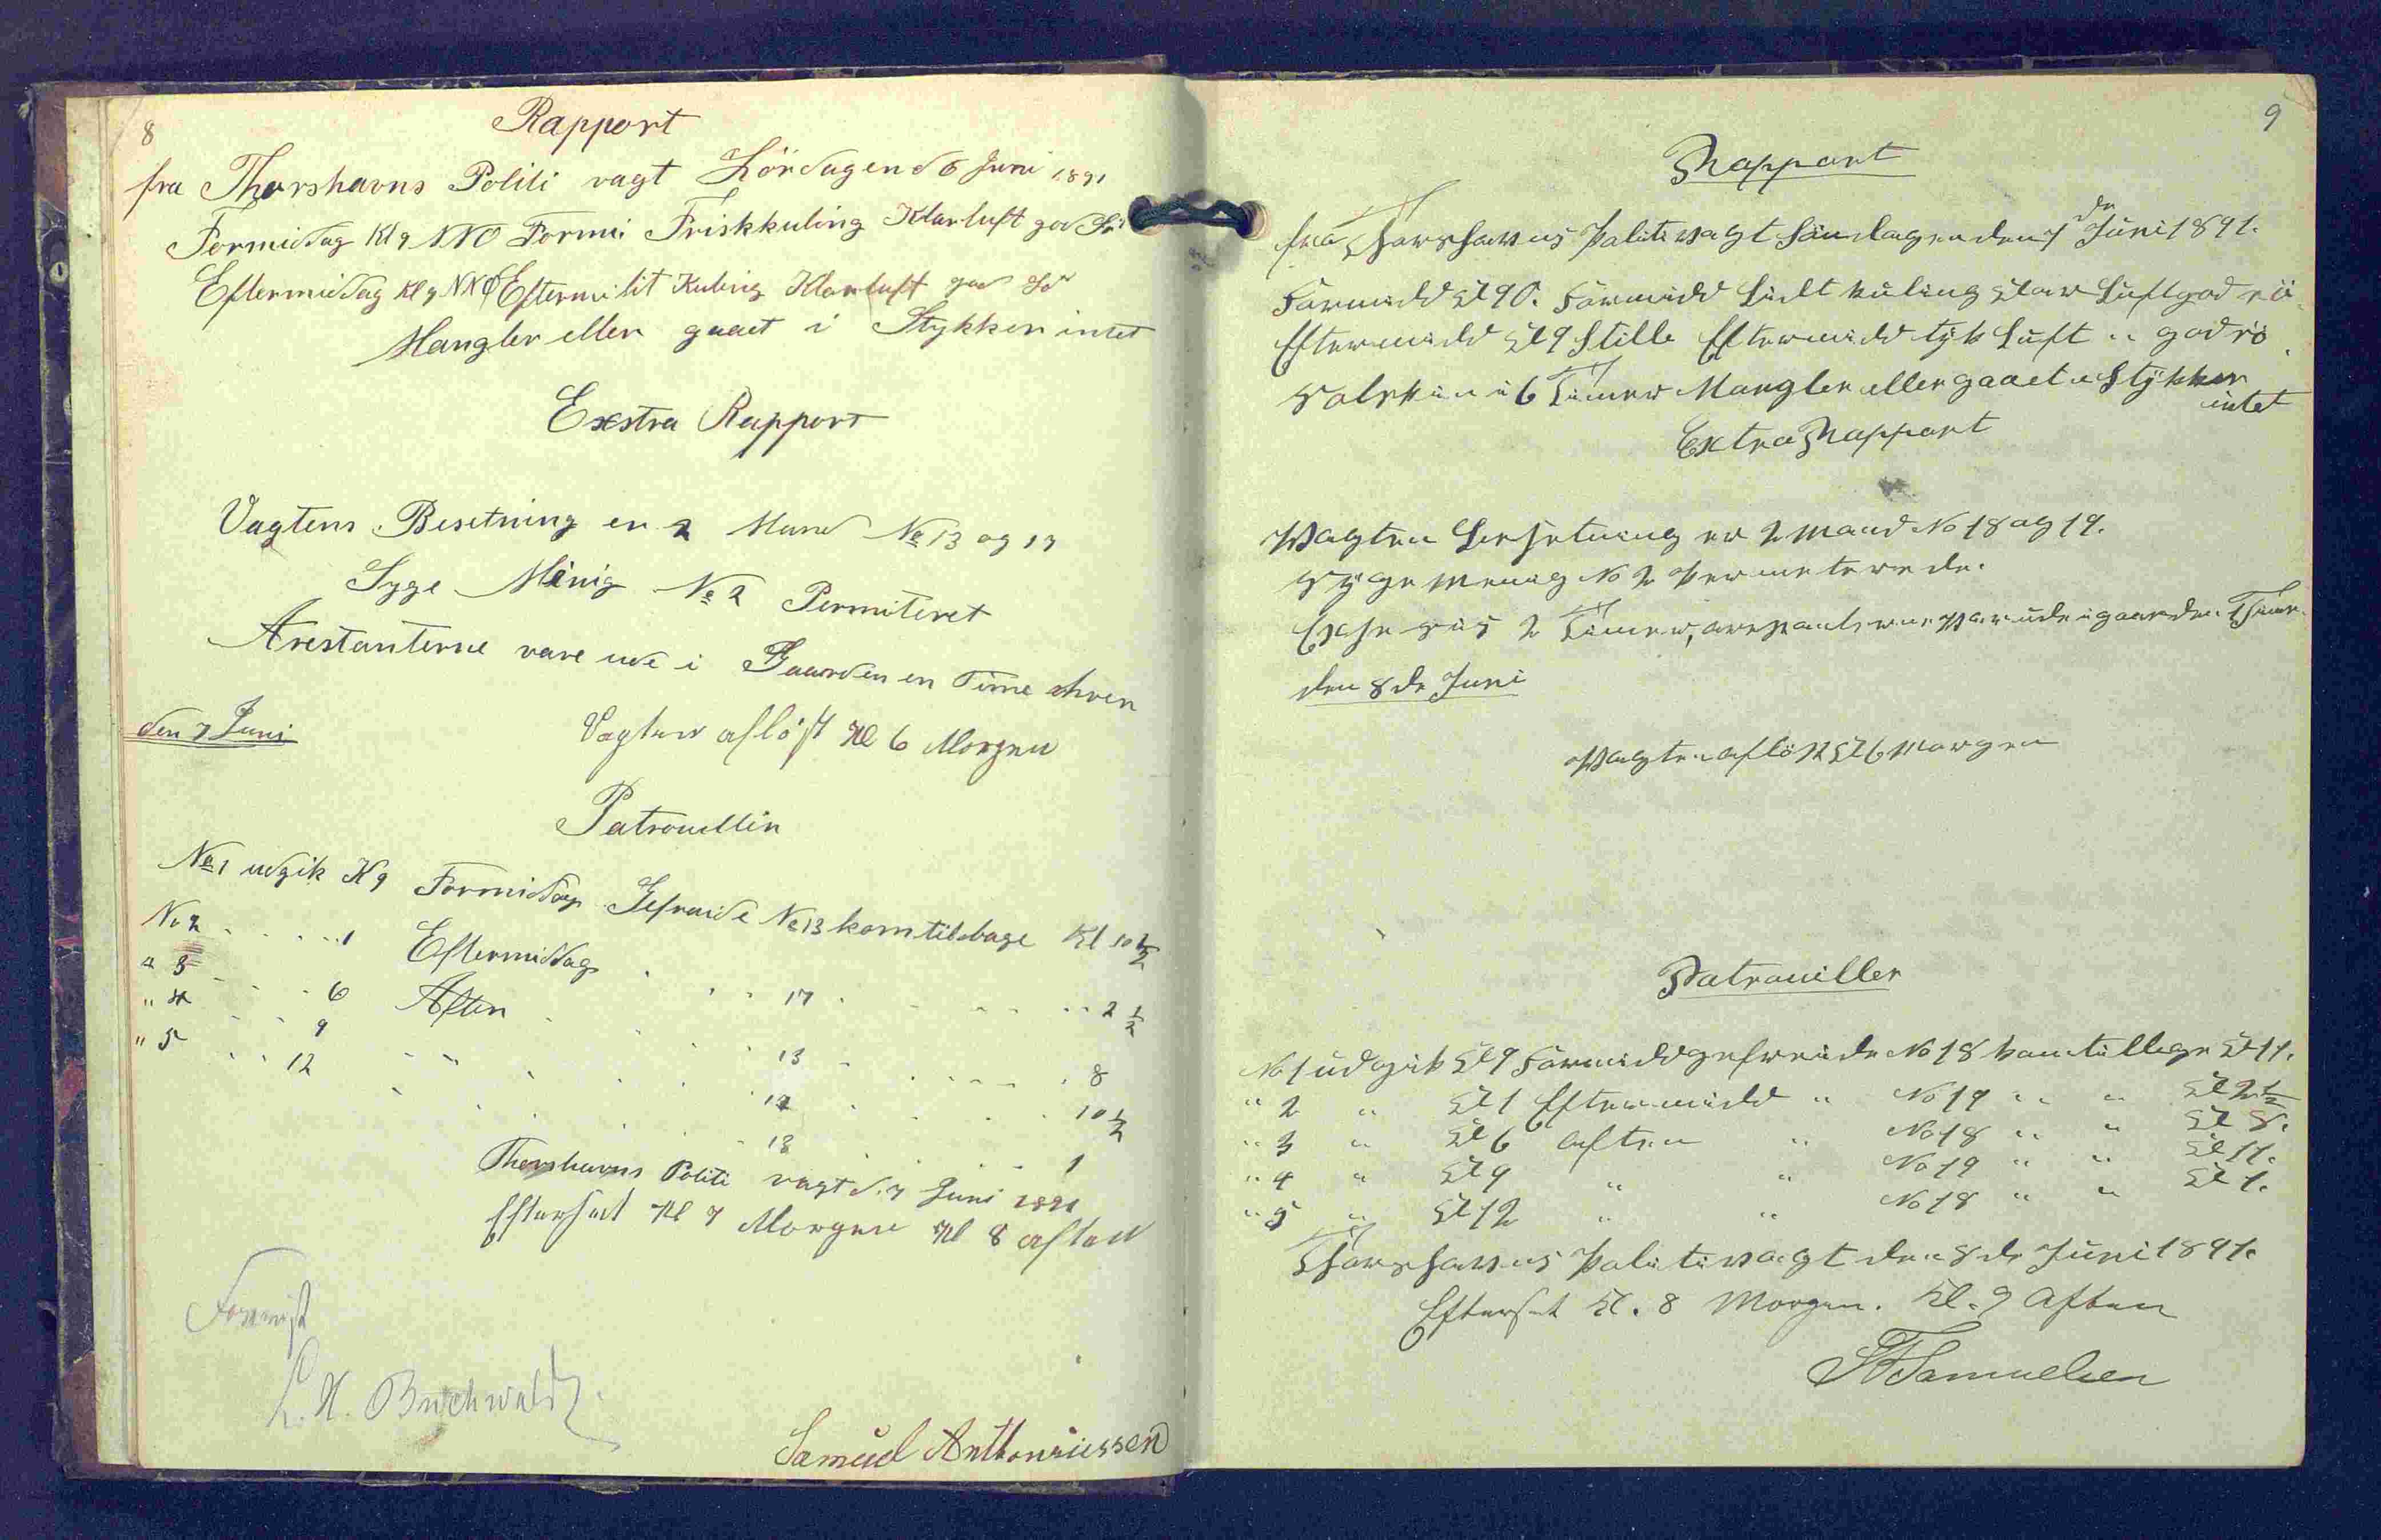 8
Rapport
fra Thorshavns Politi vagt Lördagen d 6 Juni 1891
Formidag Kl 9 NNO Formi Friskkuling Klarluft god Sö
Eftermidag Kl 9 NNØ Eftermi lit Kuling Klarluft god Sö
Mangler eller gaaet i Stykker intet
Exstra Rapport
Vagtens Besetning er 2 Mand No 13 og 17
Syge Menig No 2 Permiteret
Arestanterne vare ude i Gaarden en Time hver
den 7 Juni
Vagten aflöst Kl 6 Morgen
Patrouller
No 1 udgik K 9 Formidag Gefreide No 13 kom tilbage Kl 10 1/2
No 2 " " 1 Eftermidag " " 17 " " " 2 1/2
" 3 " " 6 Aften " " 13 " " " 8
" 4 " " 9 " " " 17 " " " 10 1/2
" 5 " " 12 " " " 13 " " " 1
Thorshavns Politi vagt d. 7 Juni 1891
Efterset Kl 7 Morgen Kl 8 aften
Forevist
L. H. Buchwaldt
Samuel Anthoniussen
9
Rapport
fra Thorshavns Politivagt Söndagen den 7 de Juni 1891.
Formidd Kl 9 O. Formidd Lidt kuling Klar Luft god sö
Eftermidd Kl 9 Stille Eftermidd tyk Luft " god sö
Solskin i 6 Timer Mangler eller gaaet i Stykker
intet
Extra Rapport
Vagten Besetning er 2 Mand No 18 og 19.
Syge Menig No 2 Permeterede.
Exsesis 2 Timer, arestanterne var ude i gaarden 1 Time
den 8 de Juni
Vagten aflöst Kl 6 Morgen
Patrouiller
No 1 udgik Kl 9 Formidd gefreide No 18 kom tillbage Kl 11.
" 2 " Kl 1 Eftermidd " No 19 " " Kl 2 1/2
" 3 " Kl 6 aften " No 18 " " Kl 8.
" 4 " Kl 9 " " No 19 " " Kl 11.
" 5 " Kl 12 " " No 18 " " Kl 1.
Thorshavns Politivagt den 8 de Juni 1891.
Efterset Kl. 8 Morgen. Kl. 9 Aften
Samuelsen